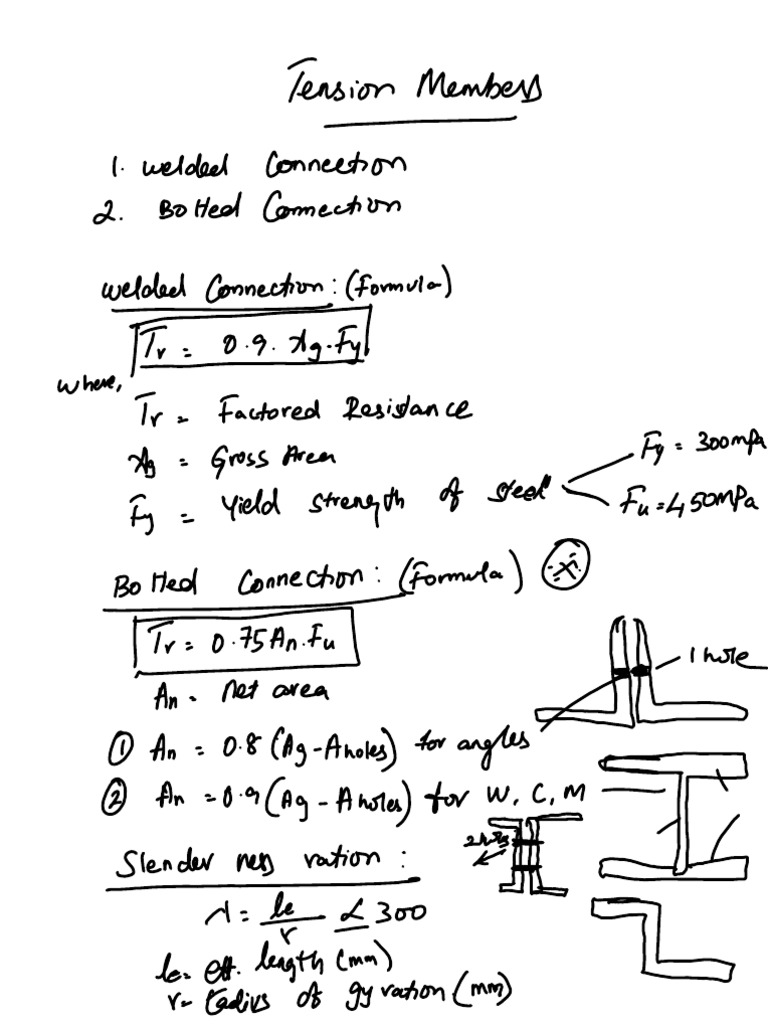 Tension Members
1. Welded Connection
2. Bolted Connection
Welded Connection: (Formula)
Tr = 0.9. Ag. Fy
where,
Tr = Factored Resistance
Ag = Gross Area
Fy = Yield strength of steel
Fy = 300mpa
Fu = 450MPa
Bolted Connection: (Formula)
Tr = 0.75 An. Fu
An = net area
1 hole
① An = 0.8 (Ag - Aholes) for angles
② An = 0.9 (Ag - Aholes) for W, C, M
Slenderness ration:
λ = le/r < 300
le = eff. length (mm)
r = radius of gyration (mm)